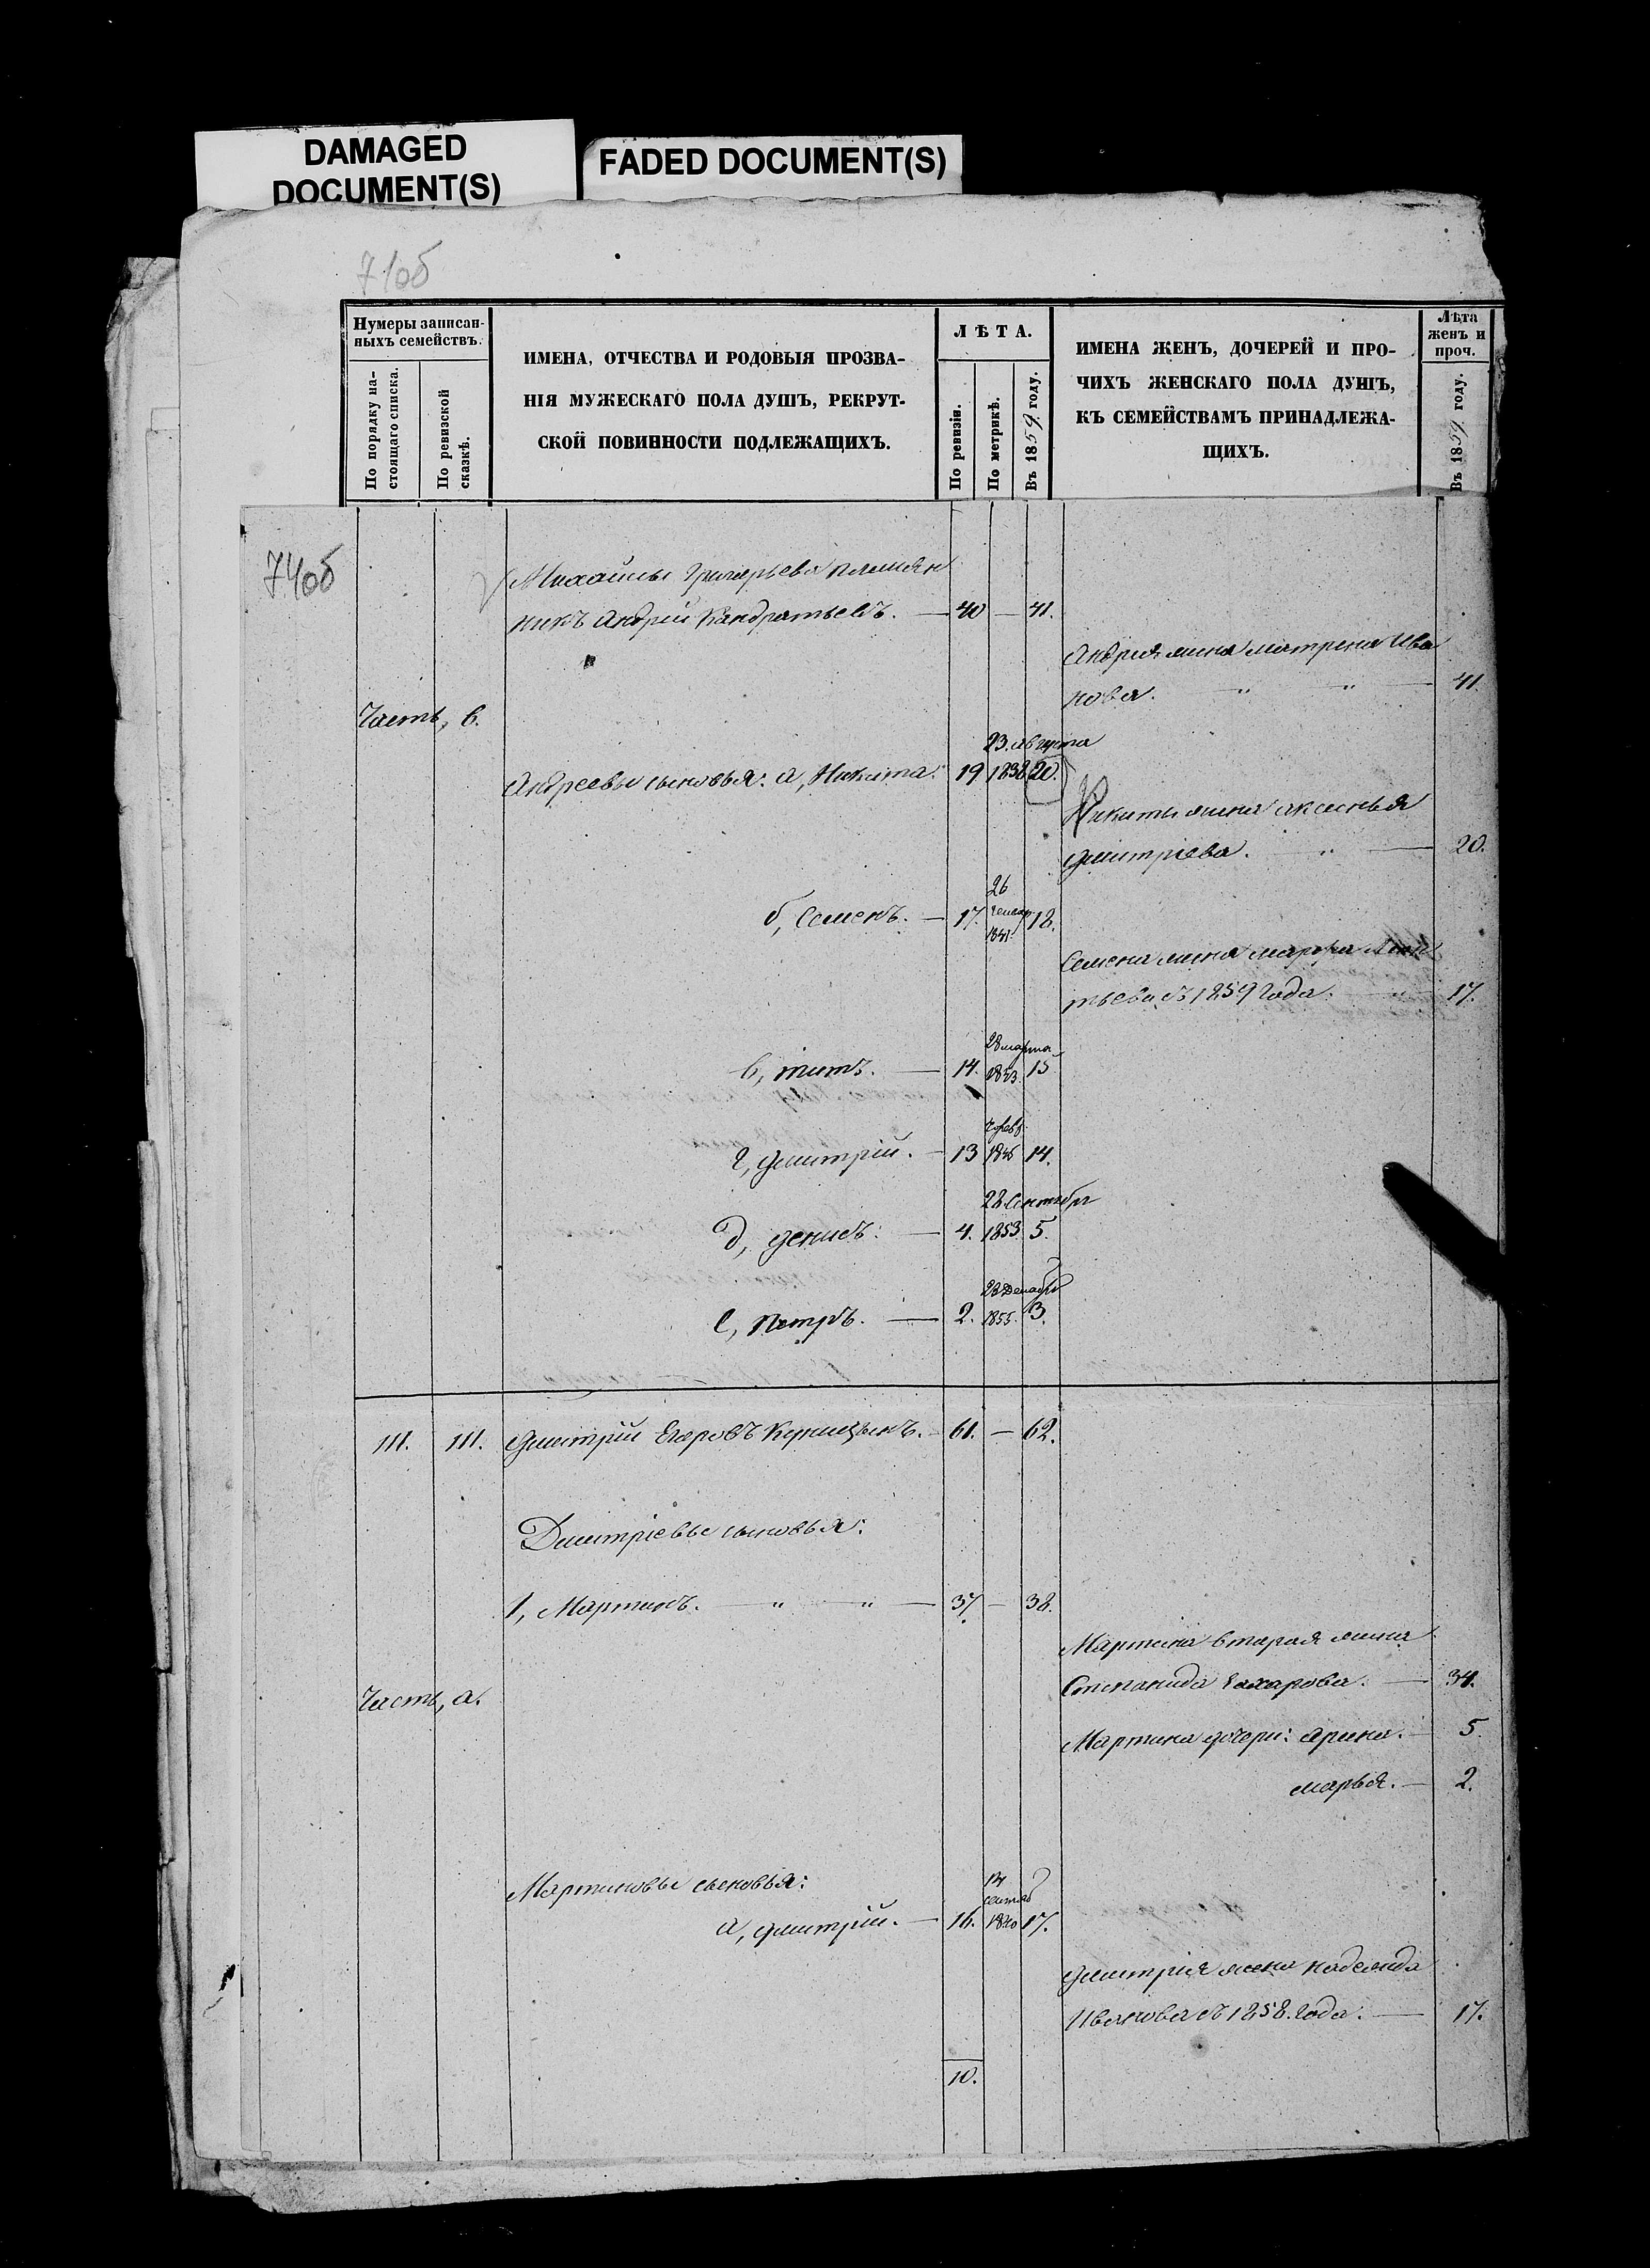 DAMAGED
DOCUMENT(S)
FADED DOCUMENT(S)
71об
Нумеры записан-
ныхъ семействъ.
По порядку на-
стоящаго списка.
По ревизской
сказкѣ.
ИМЕНА, ОТЧЕСТВА И РОДОВЫЯ ПРОЗВА-
НІЯ МУЖЕСКАГО ПОЛА ДУШЪ, РЕКРУТ-
СКОЙ ПОВИННОСТИ ПОДЛЕЖАЩИХЪ.
ЛѢТА.
По ревизіи.
По метрикѣ.
Въ 1859 году.
ИМЕНА ЖЕНЪ, ДОЧЕРЕЙ И ПРО-
ЧИХЪ ЖЕНСКАГО ПОЛА ДУШЪ,
КЪ СЕМЕЙСТВАМЪ ПРИНАДЛЕЖА-
ЩИХЪ.
Лѣта
женъ и
проч.
Въ 1859 году.
74об
Михайлы Григорьева племян
никъ Андрей Кандратьевъ. — 40 — 41.
Андрея жена Матрена Ива
нова. " " — 41.
Часть, в.
23. августа
Андреевы сыновья: а, Никита. 19 1838 20.
Никиты жена Аксенья
Дмитріева. " — 20.
26
б, Семенъ. — 17. Генвар 18.
1841.
Семена жена Марфа
тьева съ 1859 года. " 17.
28 марта
в, Титъ. — 14. 1843. 15
февр.
г, Дмитрій. — 13 14.
28 Сентября
д, Денисъ. — 4. 1853. 5.
28 Декабр
е, Петръ. — 2. 1855. 3.
111. 111. Дмитрій Егоровъ Куницынъ. — 61. — 62.
Дмитріевы сыновья:
1, Мартинъ. — " — " — 37 — 38.
Мартина вторая жена
Степанида Захарова. — 34.
Часть, а.
Мартина дочери: Арина. — 5
Марья. — 2.
Мартиновы сыновья:
сентяб
а, Дмитрій. — 16. 1840 17.
Дмитрія жена Надежда
Иванова съ 1858. года. — 17.
10.